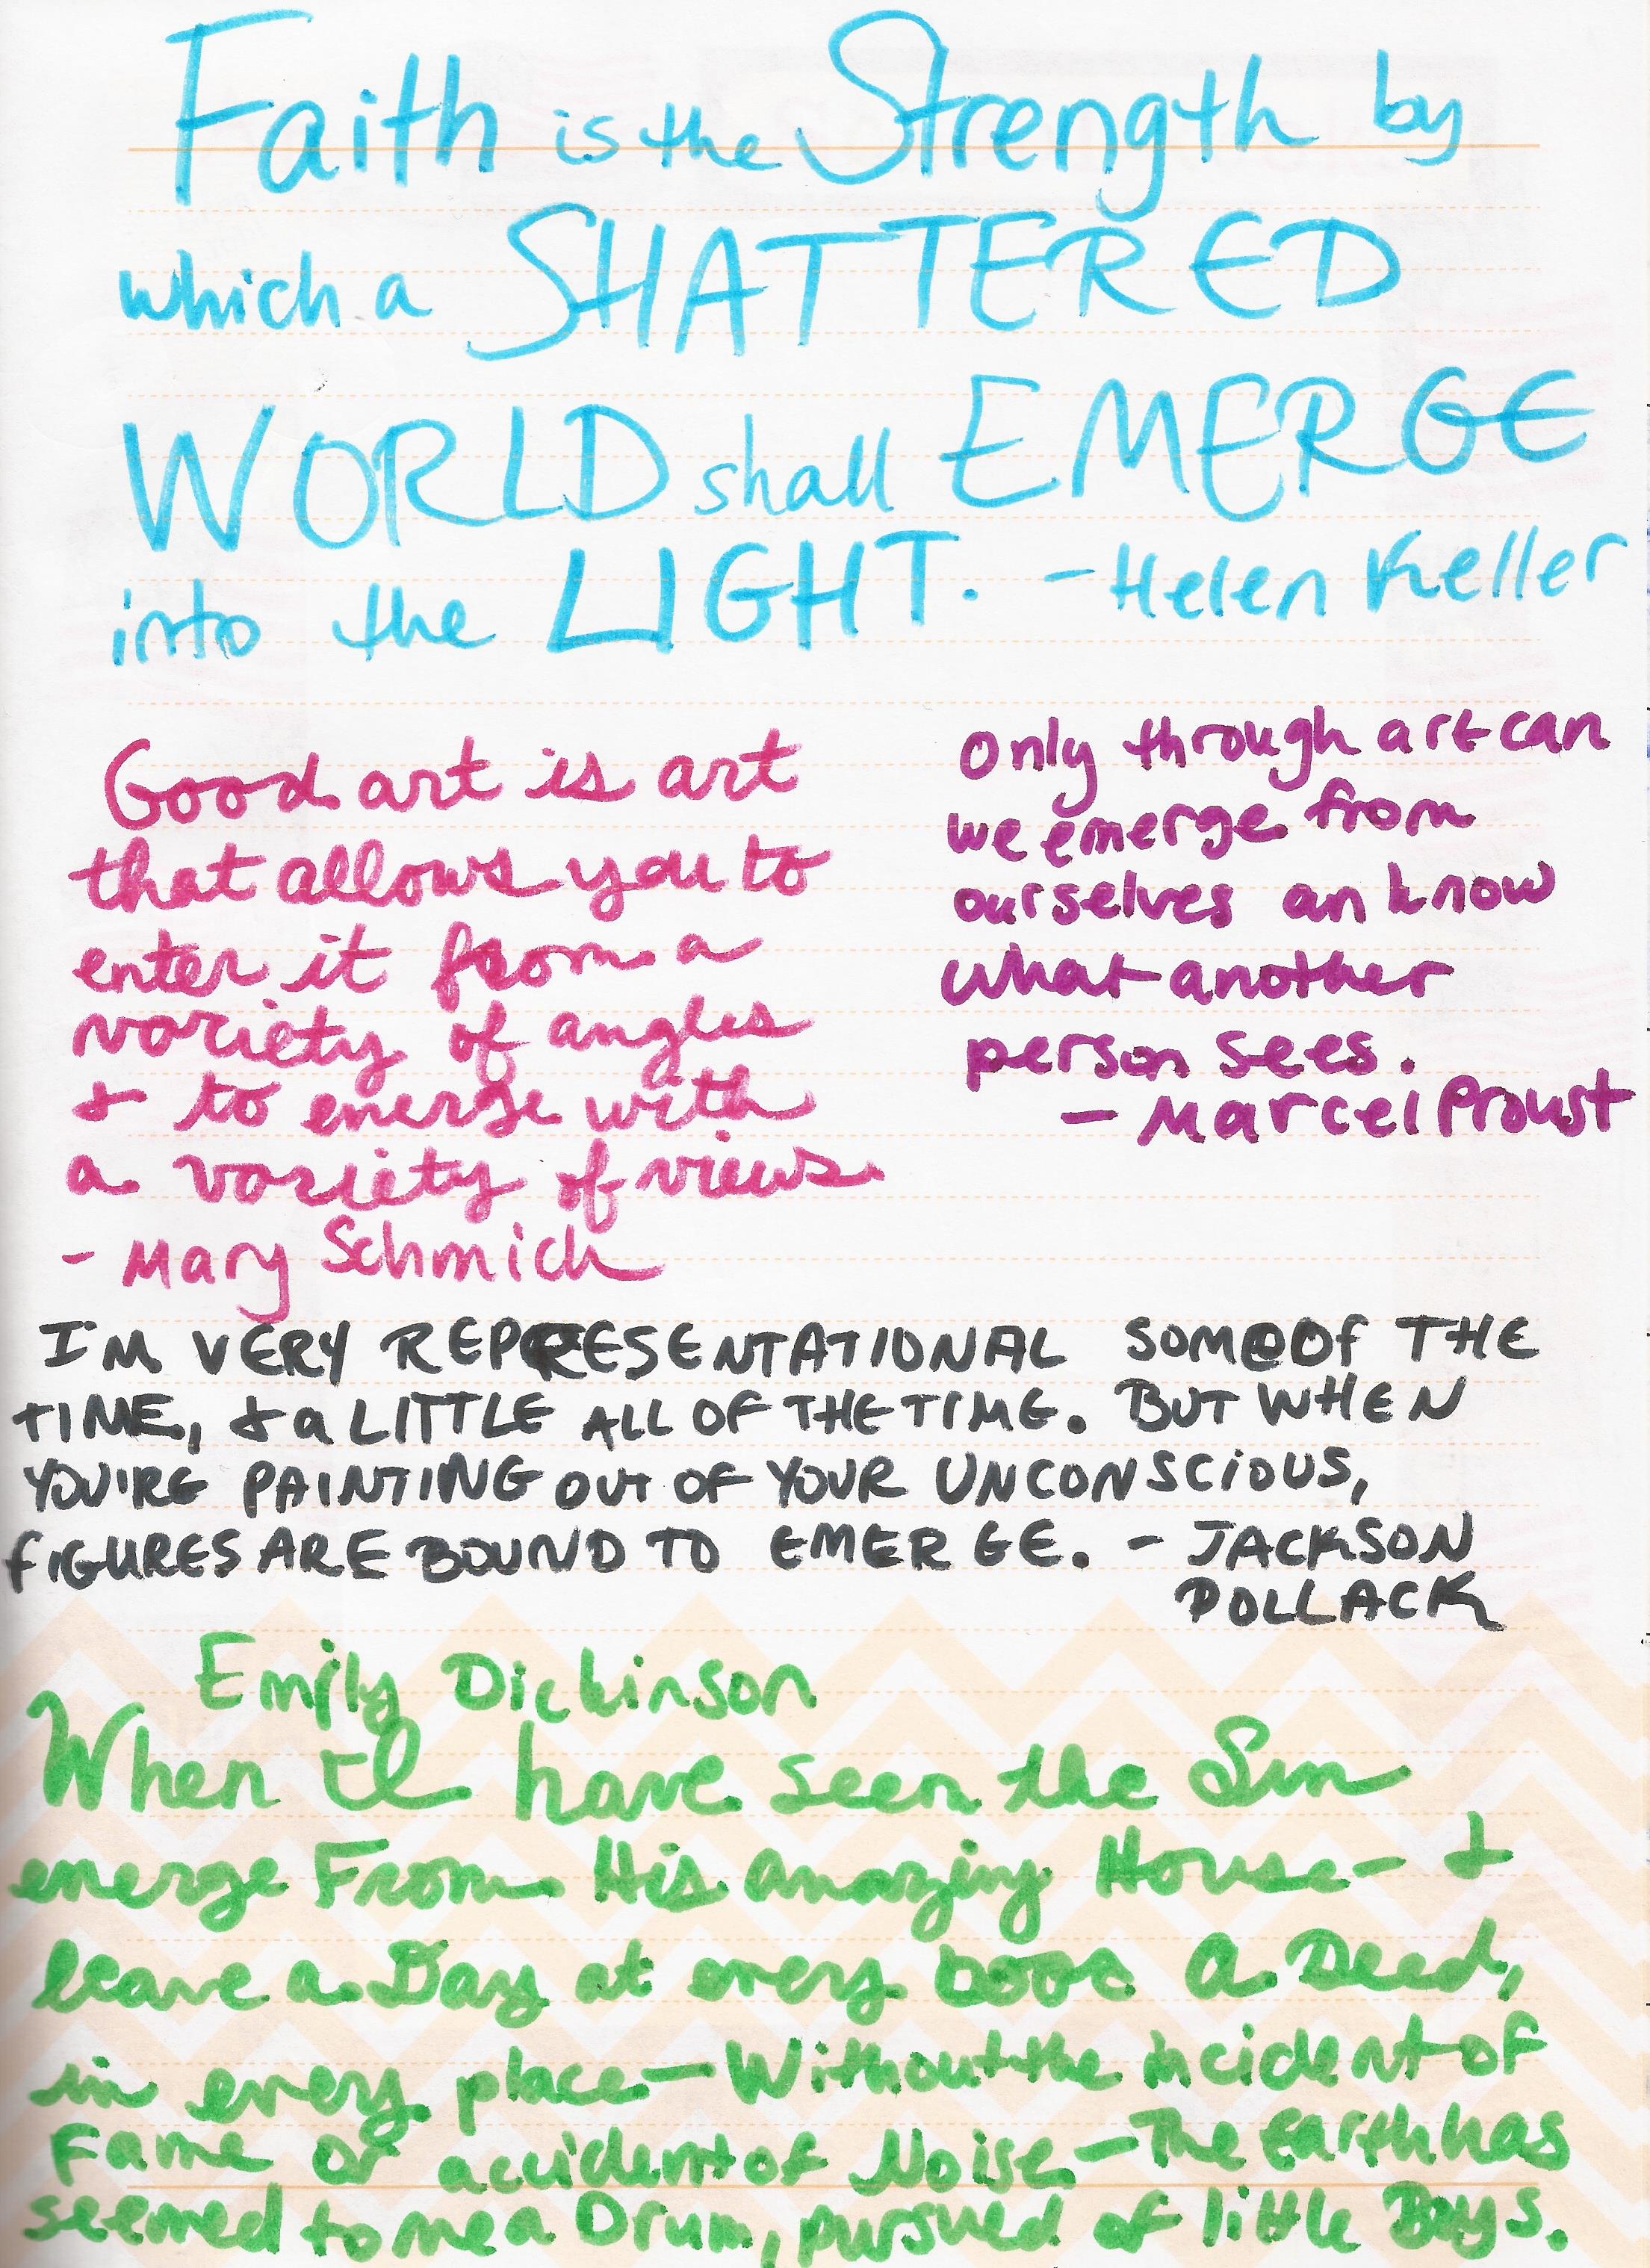 Faith is the Strength by
which a SHATTERED
WORLD shall EMERGE
into the LIGHT. - Helen Keller
Good art is art
that allows you to
enter it from a
variety of angles
& to emerge with
a variety of views.
- Mary Schmich
Only through art can
we emerge from
ourselves an know
what another
person sees.
- Marcel Proust
I'M VERY REPRESENTATIONAL SOME OF THE
TIME, & a LITTLE ALL OF THE TIME. BUT WHEN
YOU'RE PAINTING OUT OF YOUR UNCONSCIOUS,
FIGURES ARE BOUND TO EMERGE. - JACKSON
POLLACK
Emily Dickinson
When I have seen the Sun
emerge From His amazing House - &
leave a Day at every Door A Deed,
in every place - Without the incident of
Fame Or accident of Noise - The Earth has
seemed to me a Drum, pursued of little Boys.